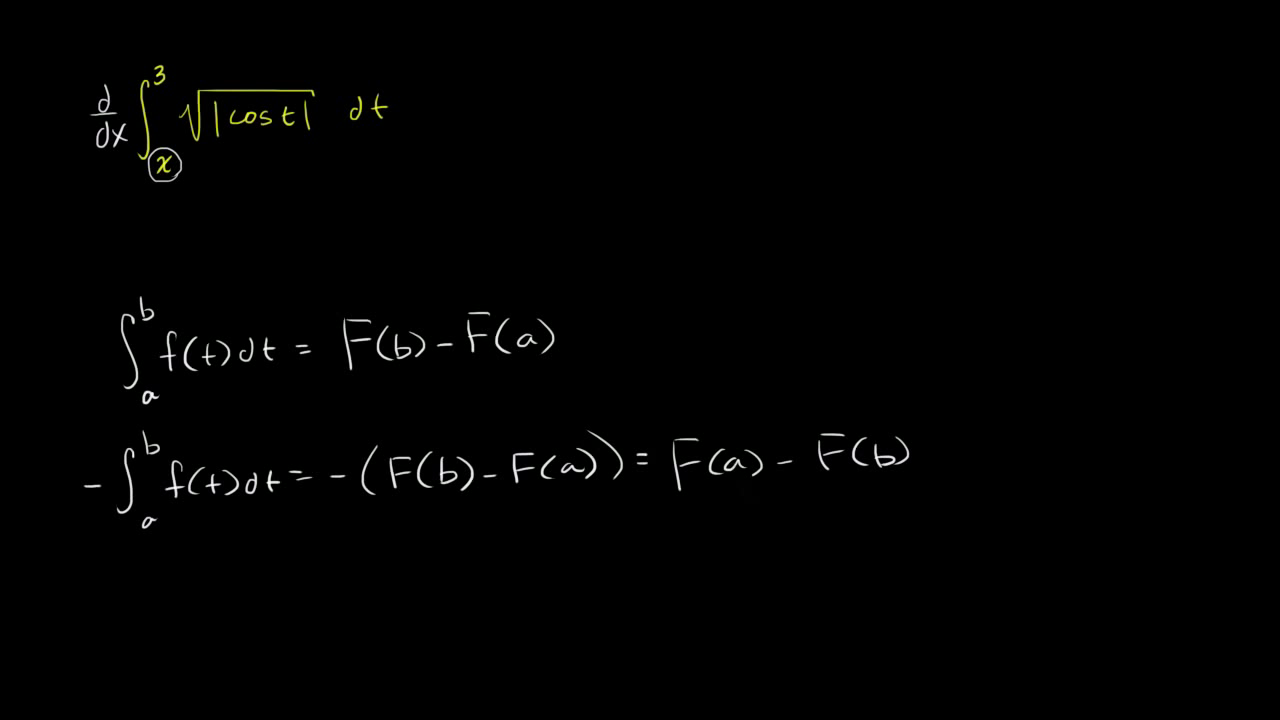 d/dx ∫_x^3 √|cos t| dt
∫_a^b f(t)dt = F(b) - F(a)
- ∫_a^b f(t)dt = - (F(b) - F(a)) = F(a) - F(b)